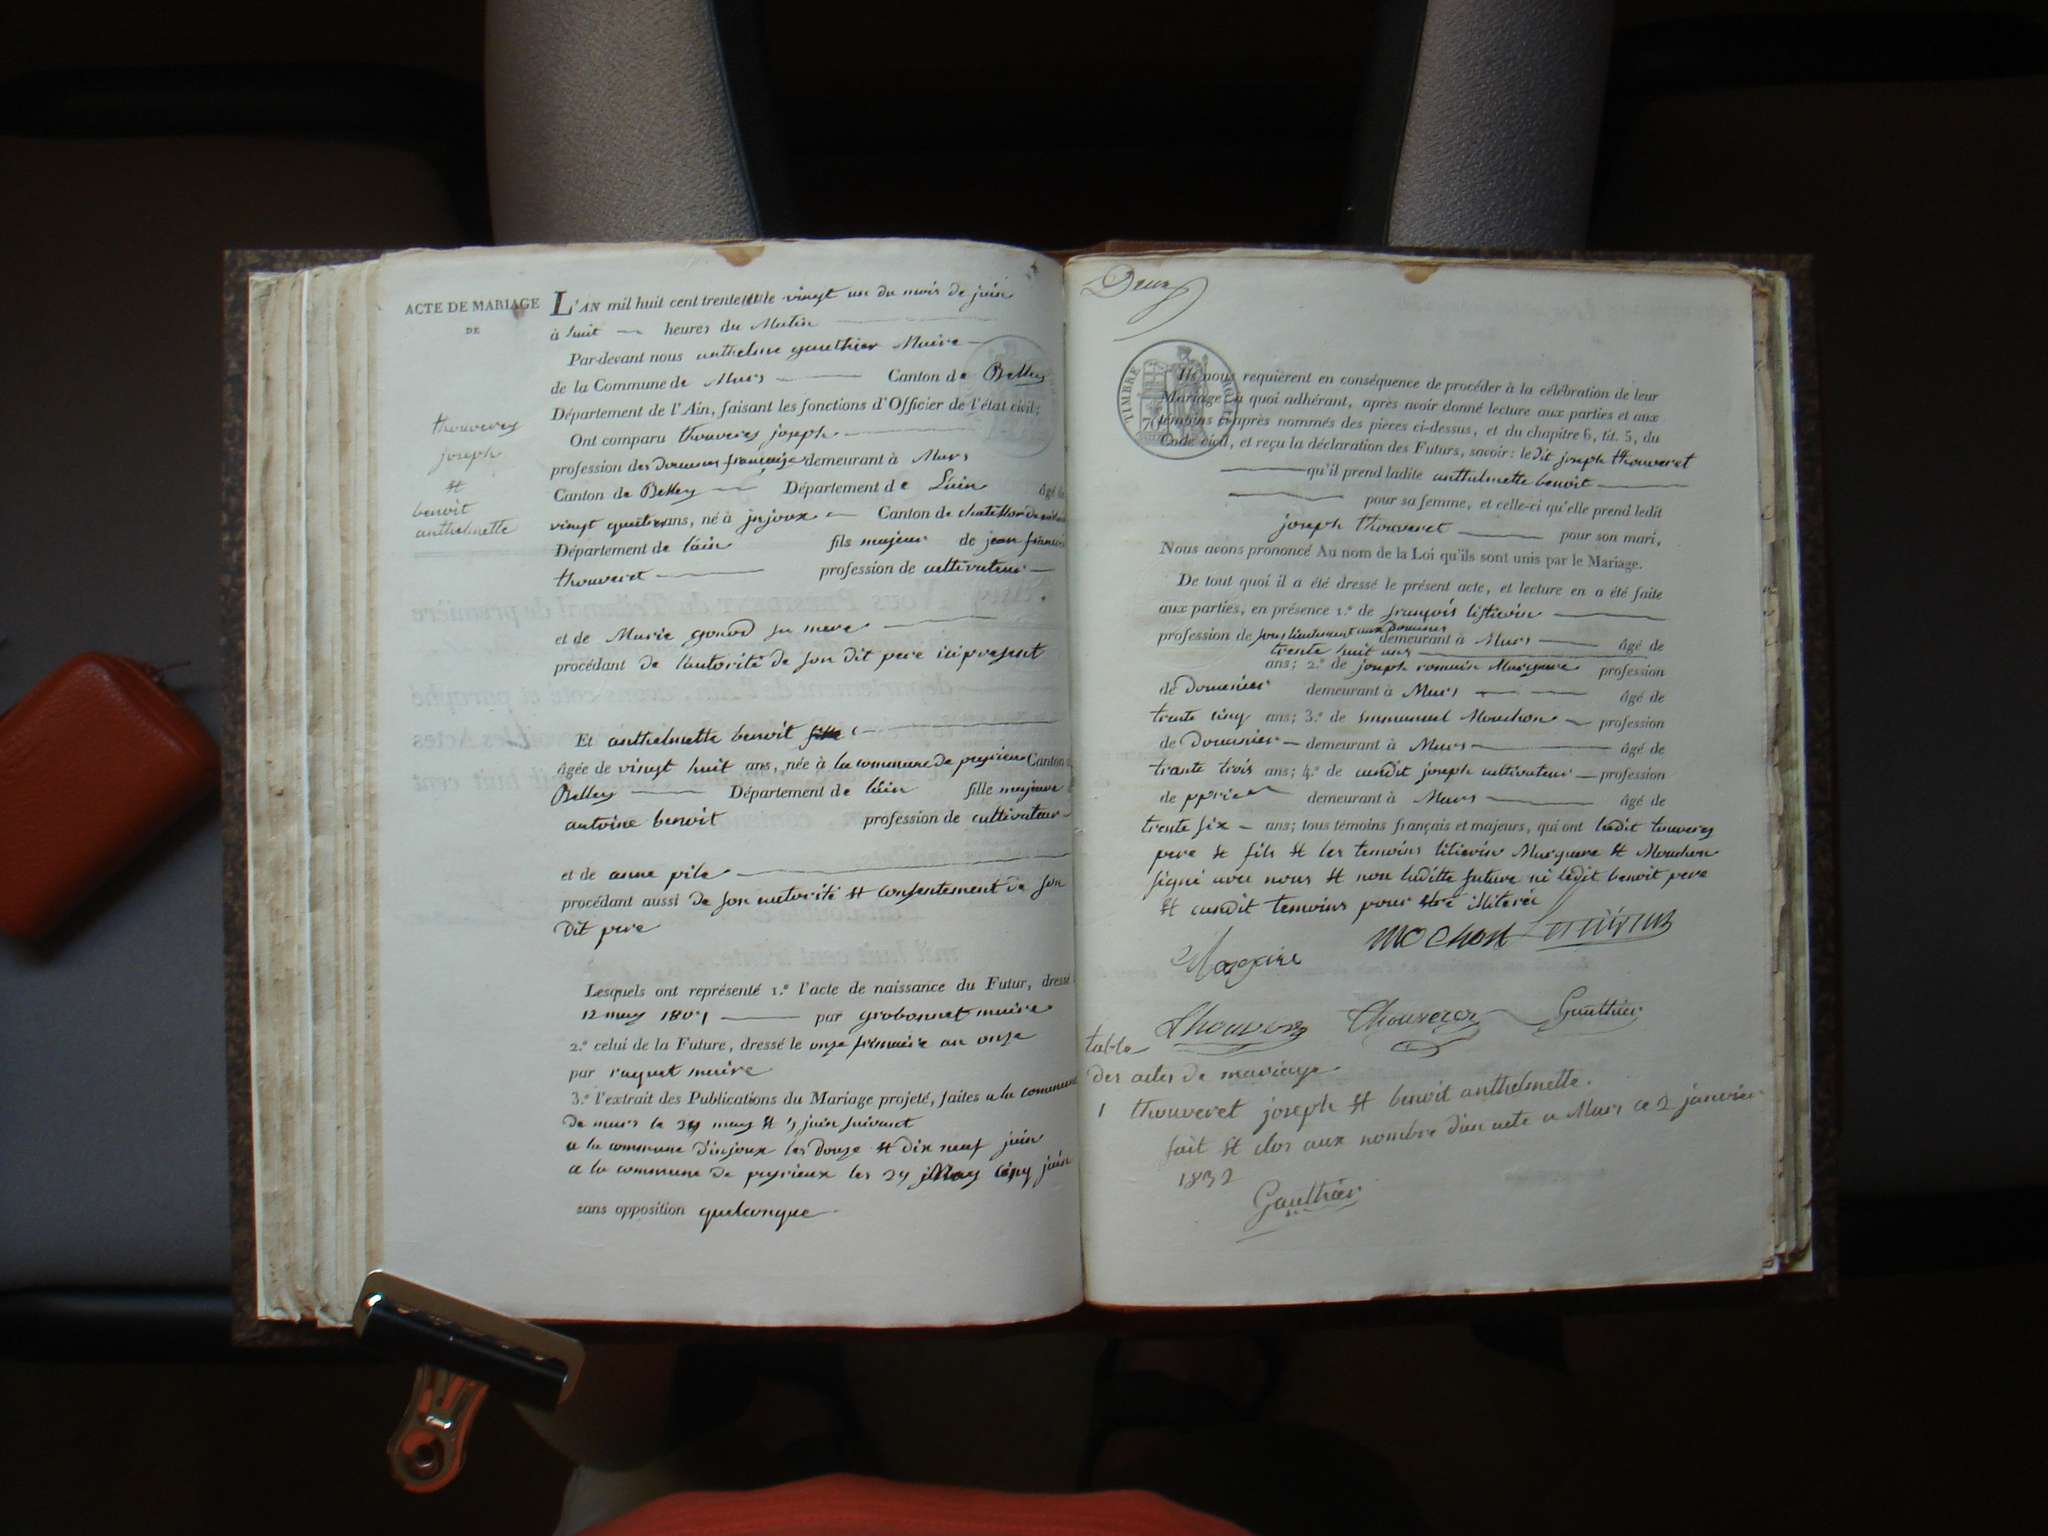 ACTE DE MARIAGE
DE
thouverey
joseph
et
benoit
anthelmette
L'AN mil huit cent trente et le vingt un du mois de juin
à huit heures du Matin
Par-devant nous anthelme gauthier Maire
de la Commune de Murs Canton de Belley
Département de l'Ain, faisant les fonctions d'Officier de l'état civil;
Ont comparu thouverey joseph
profession des Douanes françaises demeurant à Murs
Canton de Belley Département de L'ain âgé de
vingt quatre ans, né à injoux Canton de chatillon de
Département de l'ain fils majeur de jean francois
thouveret profession de cultivateur
et de Marie gonod sa mere
procédant de l'autorité de son dit pere ici present
Et anthelmette benoit
âgée de vingt huit ans, née à la commune de peyrieu Canton
Belley Département de l'ain fille majeure
antoine benoit profession de cultivateur
et de anne pile
procédant aussi de son autorité et consentement de son
dit pere
Lesquels ont représenté 1.º l'acte de naissance du Futur, dressé
12 may 1807 par grobonnet maire
2.º celui de la Future, dressé le onze frimaire an onze
par ruquet maire
3.º l'extrait des Publications du Mariage projeté, faites a la commune
de murs le 29 may et 5 juin suivant
a la commune d'injoux les douze et dix neuf juin
a la commune de peyrieux les 29 May cinq juin
sans opposition quelconque
Deux
TIMBRE ROYAL
70
Ils nous requièrent en conséquence de procéder à la célébration de leur
Mariage, à quoi adhérant, après avoir donné lecture aux parties et aux
témoins ci-après nommés des pièces ci-dessus, et du chapitre 6, tit. 5, du
Code civil, et reçu la déclaration des Futurs, savoir: ledit joseph thouveret
qu'il prend ladite anthelmette benoit
pour sa femme, et celle-ci qu'elle prend ledit
joseph thouveret pour son mari,
Nous avons prononcé Au nom de la Loi qu'ils sont unis par le Mariage.
De tout quoi il a été dressé le présent acte, et lecture en a été faite
aux parties, en présence 1.º de françois
profession de sous lieutenant aux Douanes demeurant à Murs âgé de
trente huit ans
ans; 2.º de joseph romain Marguere profession
de Douanier demeurant à Murs âgé de
trente cinq ans; 3.º de Emmanuel Mouchon profession
de Douanier demeurant à Murs âgé de
trante trois ans; 4.º de candit joseph cultivateur profession
de demeurant à Murs âgé de
trente six ans; tous témoins français et majeurs, qui ont ledit touverey
pere et fils et les temoins Marguere et Mouchon
signé avec nous et non laditte future ni ledit benoit pere
et candit temoins pour etre illiteré
Margaire mochon
Thouverey Thouverey Gauthier
table
des actes de mariage
1 thouveret joseph et benoit anthelmette.
fait et clos aux nombre d'un acte a Murs ce 2 janvier
1832
Gauthier